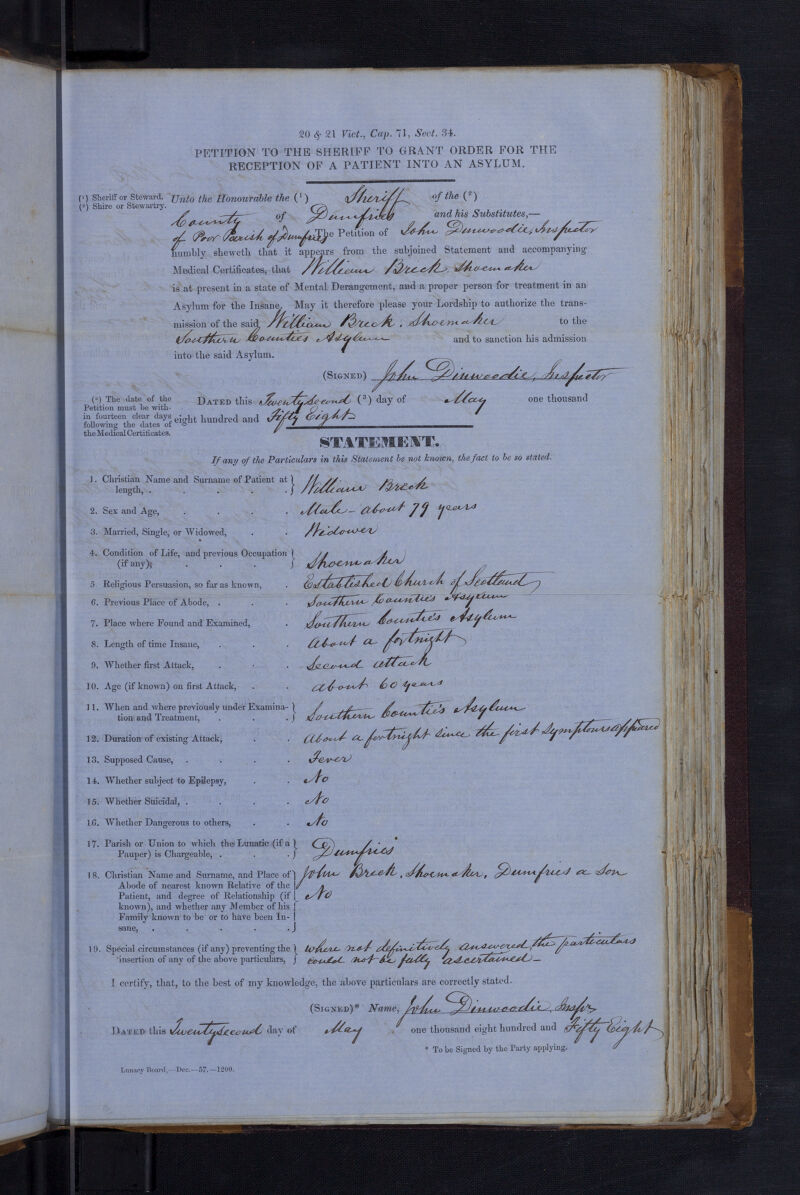 20 & 21 Vict., Cap. 71, Sect. 34.
PETITION TO THE SHERIFF TO GRANT ORDER FOR THE
RECEPTION OF A PATIENT INTO AN ASYLUM.
(¹) Sheriff or Steward.
(²) Shire or Stewartry.
Unto the Honourable the (¹) Sheriff of the (²)
County of Dumfries and his Substitutes,—
The Petition of John Dinwoodie, Inspector
of Poor Parish of Dumfries
humbly sheweth that it appears from the subjoined Statement and accompanying
Medical Certificates, that William Breck, Shoemaker
is at present in a state of Mental Derangement, and a proper person for treatment in an
Asylum for the Insane. May it therefore please your Lordship to authorize the trans-
mission of the said William Breck, Shoemaker to the
Southern Counties Asylum and to sanction his admission
into the said Asylum.
(SIGNED) John Dinwoodie, Inspector
(³) The date of the
Petition must be with-
in fourteen clear days
following the dates of
the Medical Certificates.
DATED this Twenty Second (³) day of May one thousand
eight hundred and Fifty Eight
STATEMENT.
If any of the Particulars in this Statement be not known, the fact to be so stated.
1. Christian Name and Surname of Patient at
length, . . . . . William Breck
2. Sex and Age, . . . . Male - about 79 years
3. Married, Single, or Widowed, . . Widower
4. Condition of Life, and previous Occupation
(if any); . . . . Shoemaker
5 Religious Persuasion, so far as known, . Established Church of Scotland
6. Previous Place of Abode, . . . Southern Counties Asylum
7. Place where Found and Examined, . Southern Counties Asylum
8. Length of time Insane, . . . About a fortnight
9. Whether first Attack, . . . Second attack
10. Age (if known) on first Attack, . . about 60 years
11. When and where previously under Examina-
tion and Treatment, . . . Southern Counties Asylum
12. Duration of existing Attack, . . About a fortnight since the first Symptoms appeared
13. Supposed Cause, . . . . Fever
14. Whether subject to Epilepsy, . . No
15. Whether Suicidal, . . . . No
16. Whether Dangerous to others, . . No
17. Parish or Union to which the Lunatic (if a
Pauper) is Chargeable, . . . Dumfries
18. Christian Name and Surname, and Place of
Abode of nearest known Relative of the
Patient, and degree of Relationship (if
known), and whether any Member of his
Family known to be or to have been In-
sane, . . . . . .
John Breck, Shoemaker, Dumfries a Son
No
19. Special circumstances (if any) preventing the
insertion of any of the above particulars,
Where not definitively answered, the particulars
could not be fully ascertained -
I certify, that, to the best of my knowledge, the above particulars are correctly stated.
(SIGNED)* Name, John Dinwoodie, Inspr
DATED this Twenty Second day of May one thousand eight hundred and Fifty Eight
* To be Signed by the Party applying.
Lunacy Board,—Dec.—57.—1200.